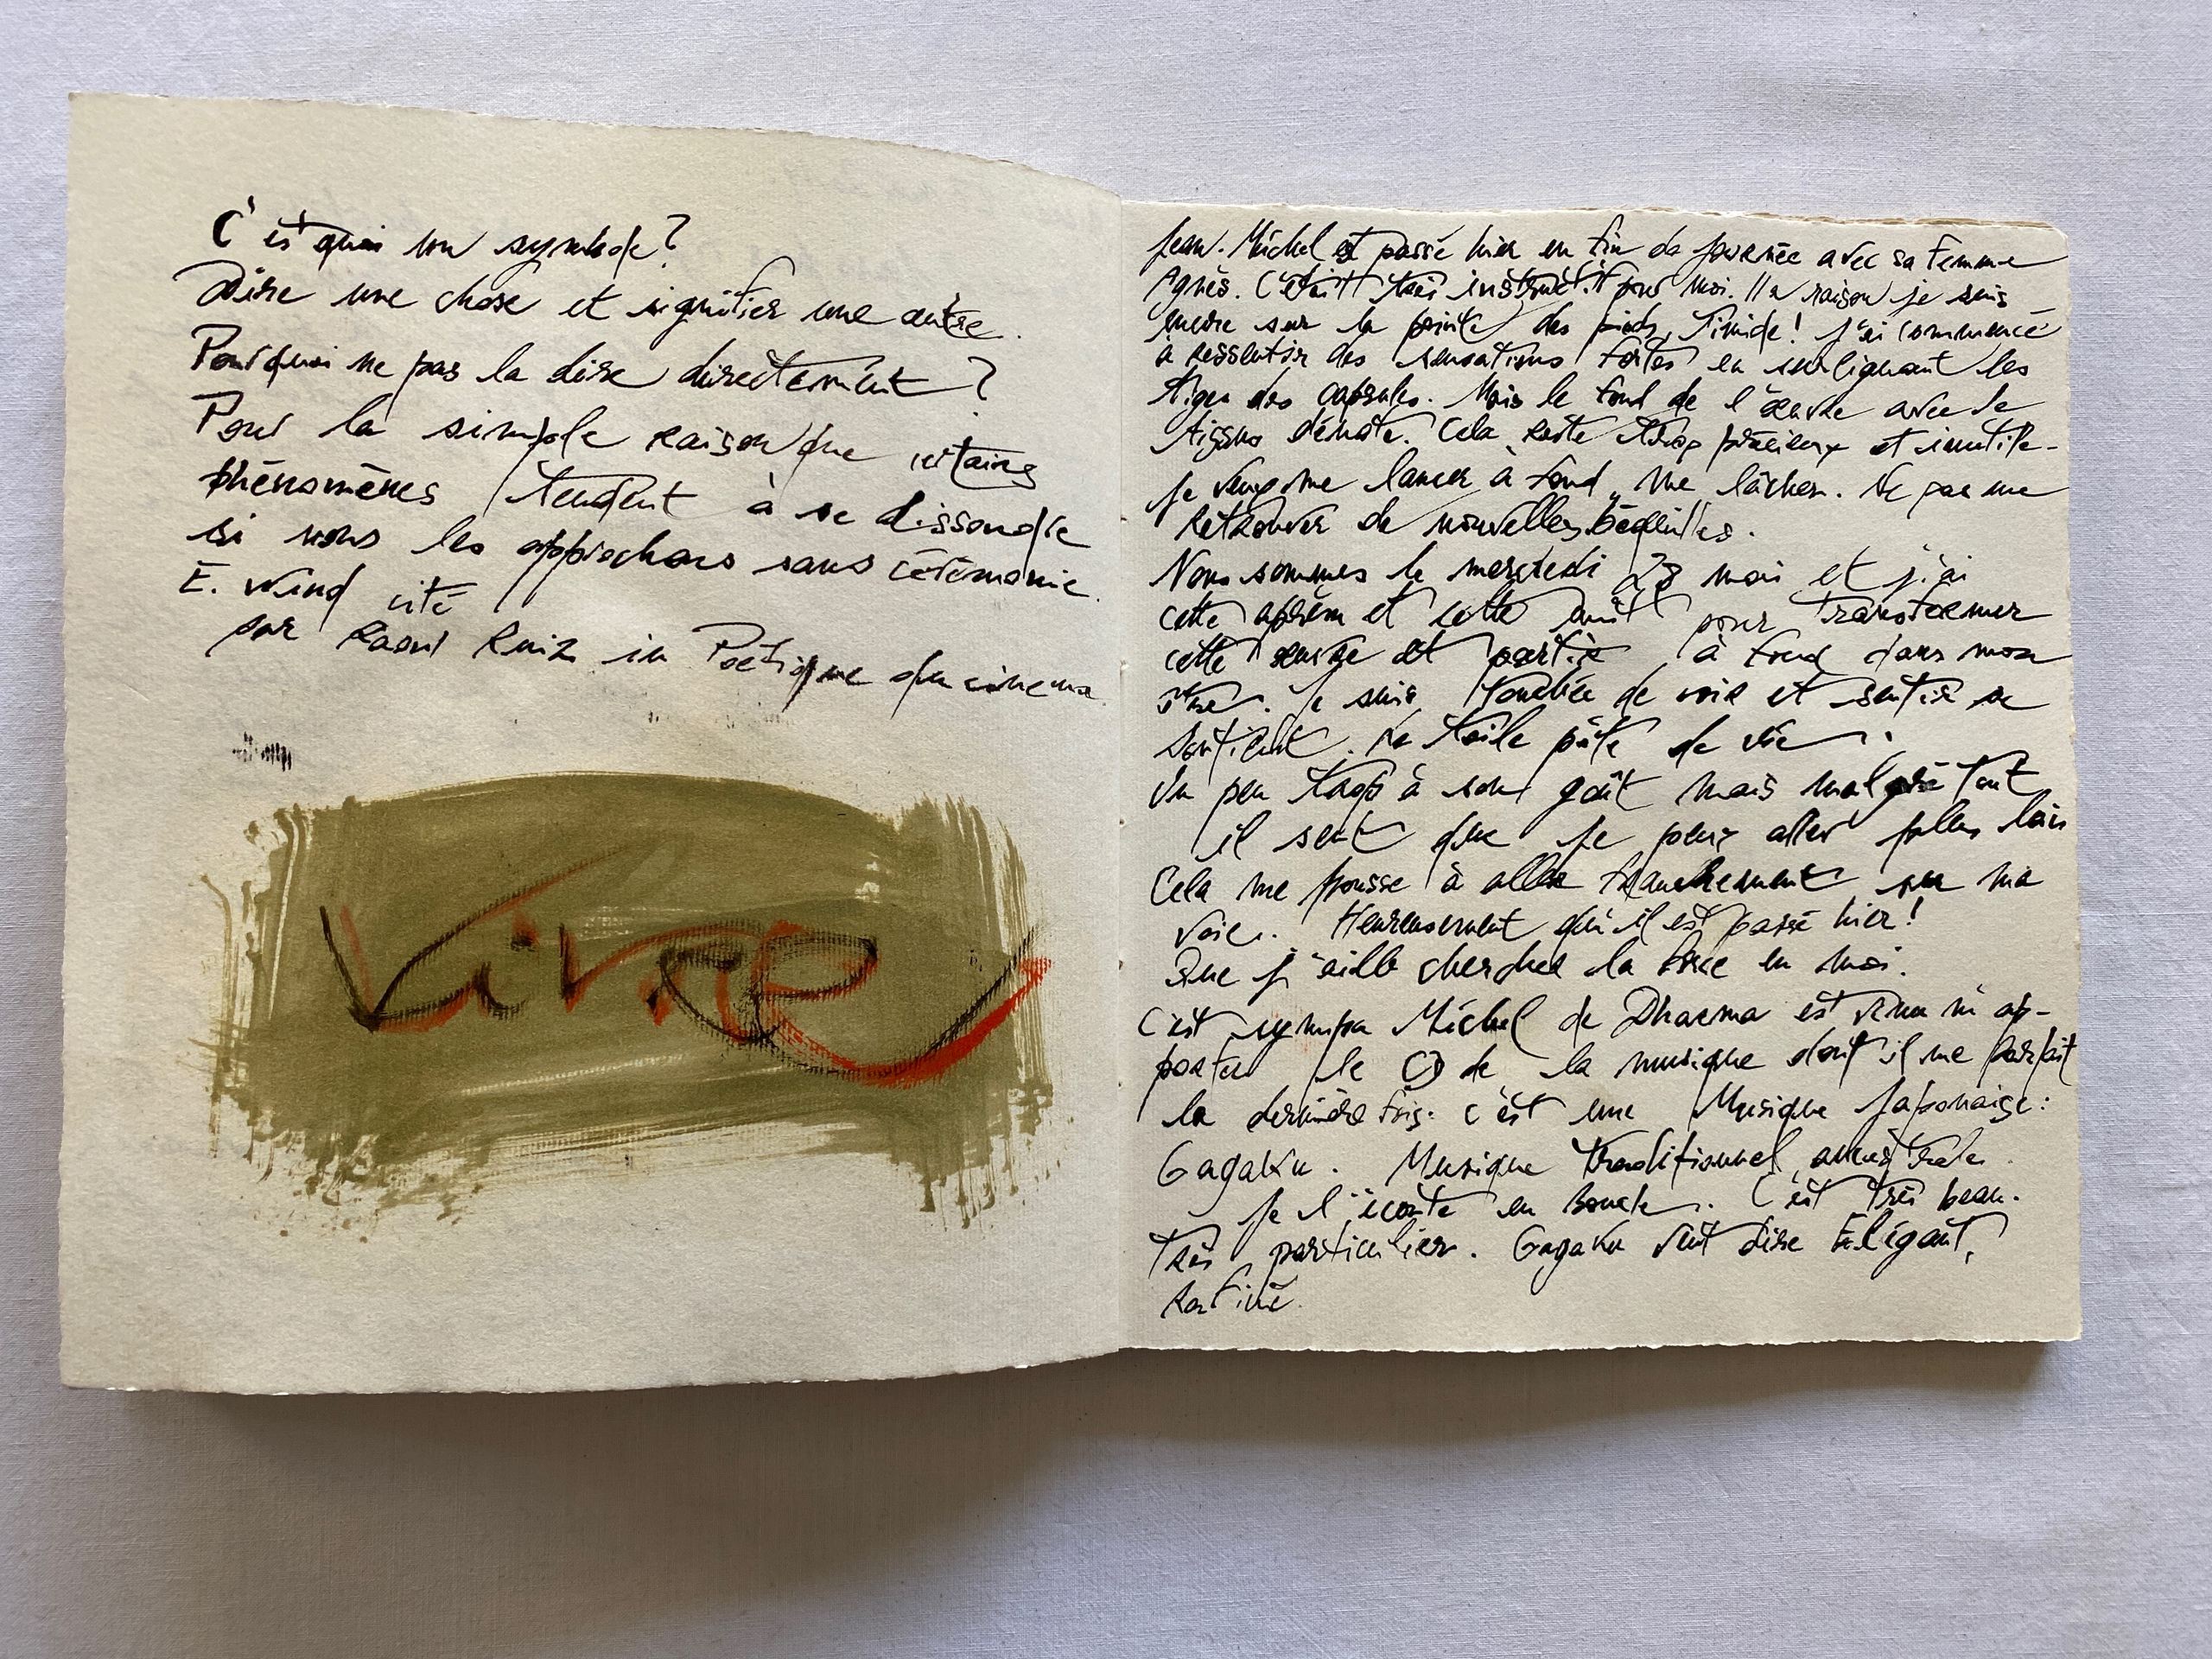 C'est quoi un symbole?
Dire une chose et signifier une autre.
Pourquoi ne pas la dire directement?
Pour la simple raison que certains
phénomènes tendent à se dissoudre
si nous les approchons sans cérémonie.
E. Wind cité
par Raoul Ruiz in Poétique du cinema
Vivre
Jean-Michel est passé hier en fin de journée avec sa femme
Agnès. C'était très instructif pour moi. Il a raison je suis
encore sur la pointe des pieds, Timide! J'ai commencé
à ressentir des sensations fortes en surlignant les
tiges des capsules. Mais le fond de l'œuvre avec le
tissus dénote. Cela reste trop précieux et inutile.
Je veux me lancer à fond, me lâcher. Ne pas me
retrouver de nouvelles béquilles.
Nous sommes le mercredi 28 mai et j'ai
cette aprèm et cette nuit pour transformer
cette œuvre et partir à fond dans mon
être. Je suis touchée de voir et sentir se
La toile pète de vie.
Un peu trop à son goût mais malgré tout
il sent que je peux aller plus loin
Cela me pousse à aller franchement sur ma
voie. Heureusement qu'il est passé hier!
Que j'aille chercher la force en moi.
C'est sympa Michel de Dharma est venu m'ap-
porter le CD de la musique dont il me parlait
la dernière fois. C'est une Musique Japonaise:
Gagaku. Musique traditionnel, ancestrale.
Je l'écoute en boucle. C'est très beau.
Très particulier. Gagaku veut dire Elégant,
Raffiné.